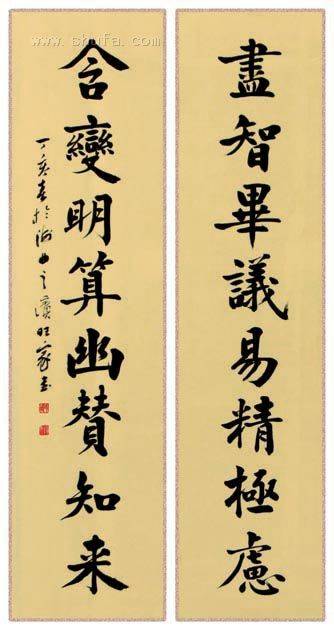 盡智畢議易精極慮
含變明算幽贊知来
丁亥春於海曲之濱旺家書
shufa.com